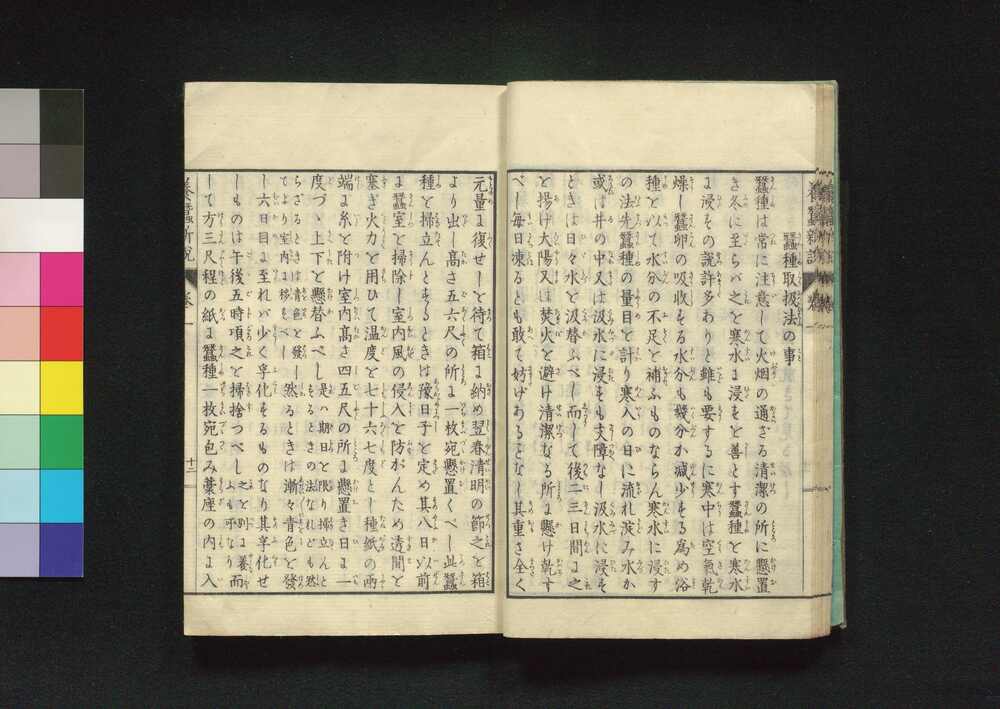 蠶種取扱法の事
蠶種は常に注意して火烟の通ざる清潔の所に懸置
き冬に至らバ之を寒水ま浸を善とす蠶種を寒水
ま浸その說許多ありと雖も要するに寒中は空氣乾
燥し蠶卵の吸收そる水分も發分か減少そる爲め浴
種を以て水分の不足を補ふものならん寒水に浸す
の法先蠶種の量目を計り寒入の日に流れ淀み水か
或は井の中又は汲水に浸そも支障なし汲水に浸そ
ときは日々水を汲替ふべし而して後二三日間ま之
を揚げ太陽又は焚火を避け清潔なる所ま懸け乾す
べし毎日凍るとも敢て妨げあることなし其重さ全く
元量ま復せしを待て箱ま納め翌春清明の節之を箱
より出し高さ五六尺の所ま一枚宛懸置くべし此蠶
種を掃立んとするときは豫日子を定め其八日以前
ま蠶室を掃除し室内風の侵入を防がんため透間を
塞ぎ火力を用ひて温度を七十六七度とし種紙の兩
端ま糸を附け室内高さ四五尺の所ま懸置き日ま一
度づゝ上下を懸替ふべし是ハ期日を限り掃立んと
するときの法なれども然
らざるときは青色を發し
てより室内ま移をべし
然るときは漸々青色を發
し六日目ま至れバ少く孚化をるものなり其孚化せ
しものは午後五時頃之を掃捨つべし
之を別ま養
ふも可なり
而
して方三尺程の紙ま蠶種一枚宛包み藁座の内ま入
養蠶新說
卷一
十二